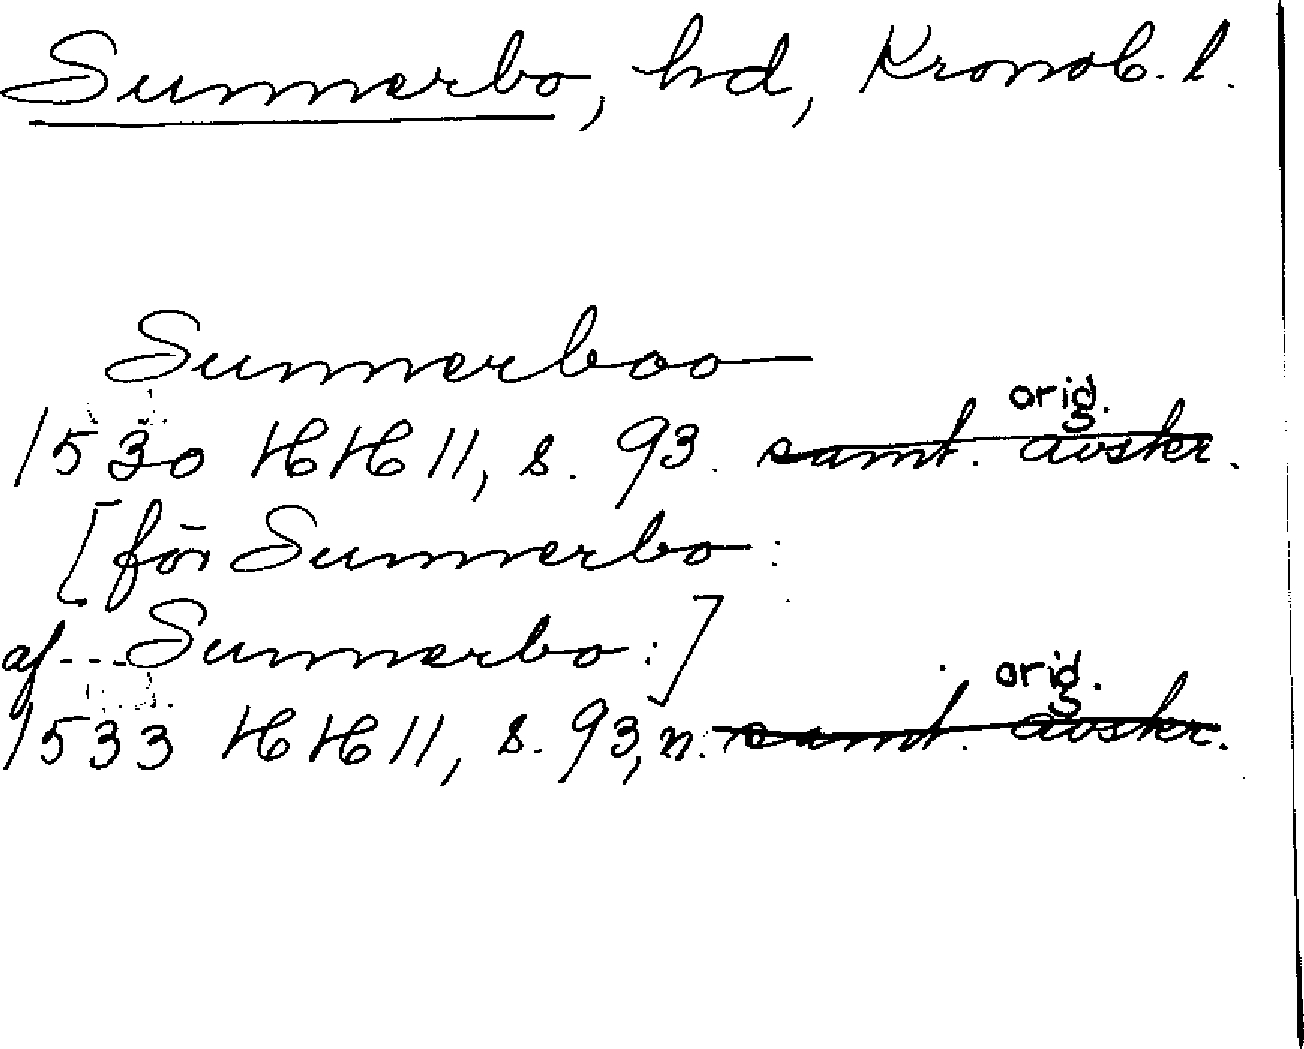 Sunnerbo, hd, Kronob. l.
Sunnerboo
orig.
1530 HH 11, s. 93. samt. avskr.
[för Sunnerbo:
af --- Sunnerbo:]
orig.
1533 HH 11, s. 93, n. samt. avskr.